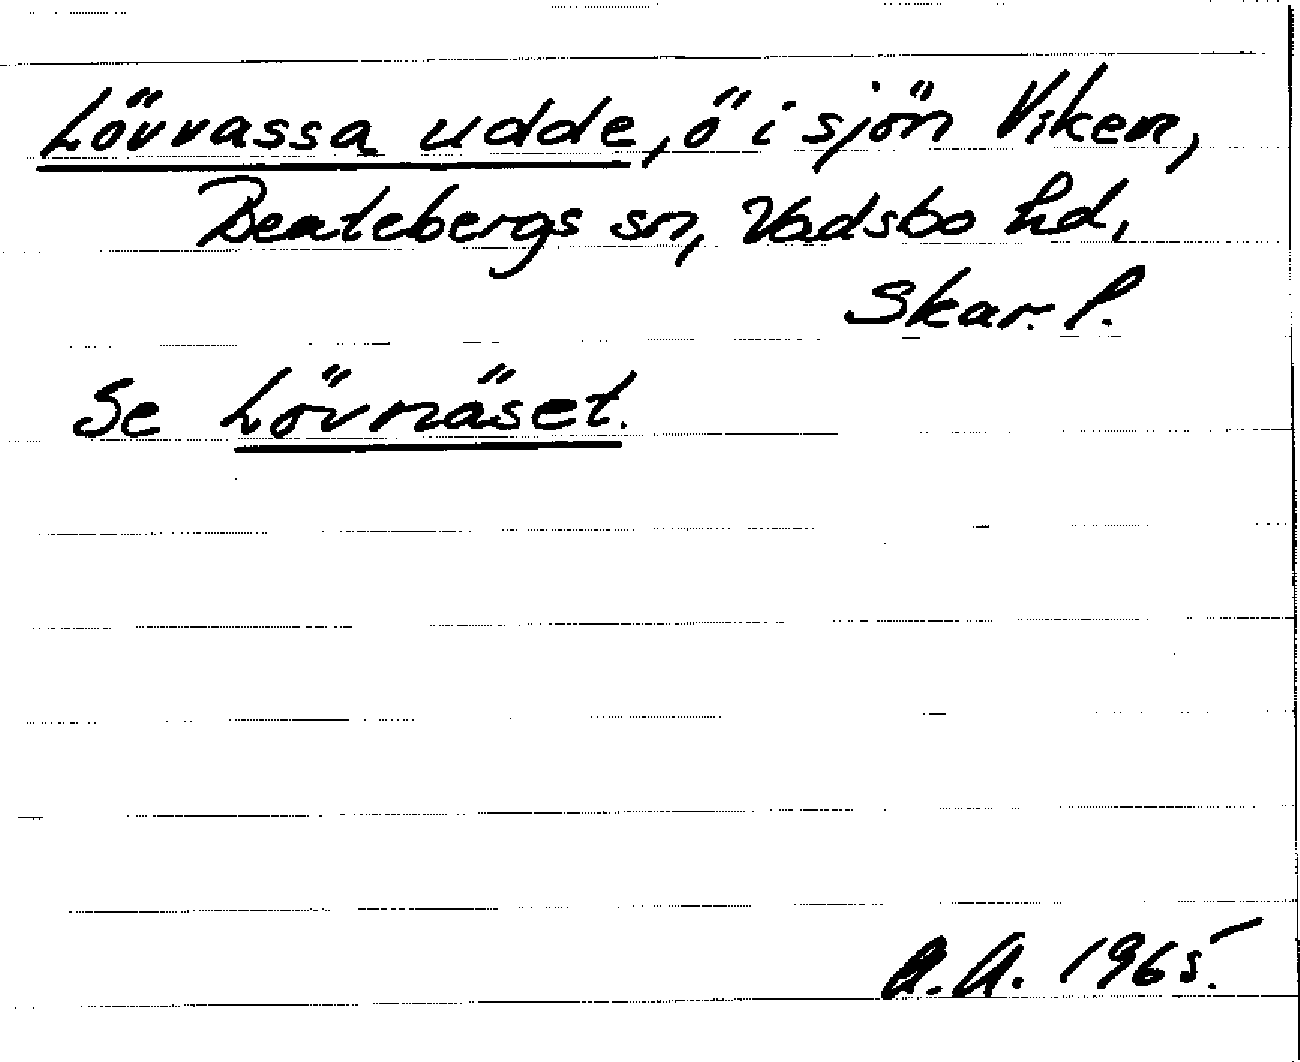 Lövvassa udde, ö i sjön Viken,
Beatebergs sn, Vadsbo hd,
Skar. l.
Se Lövnäset.
A.A. 1965.